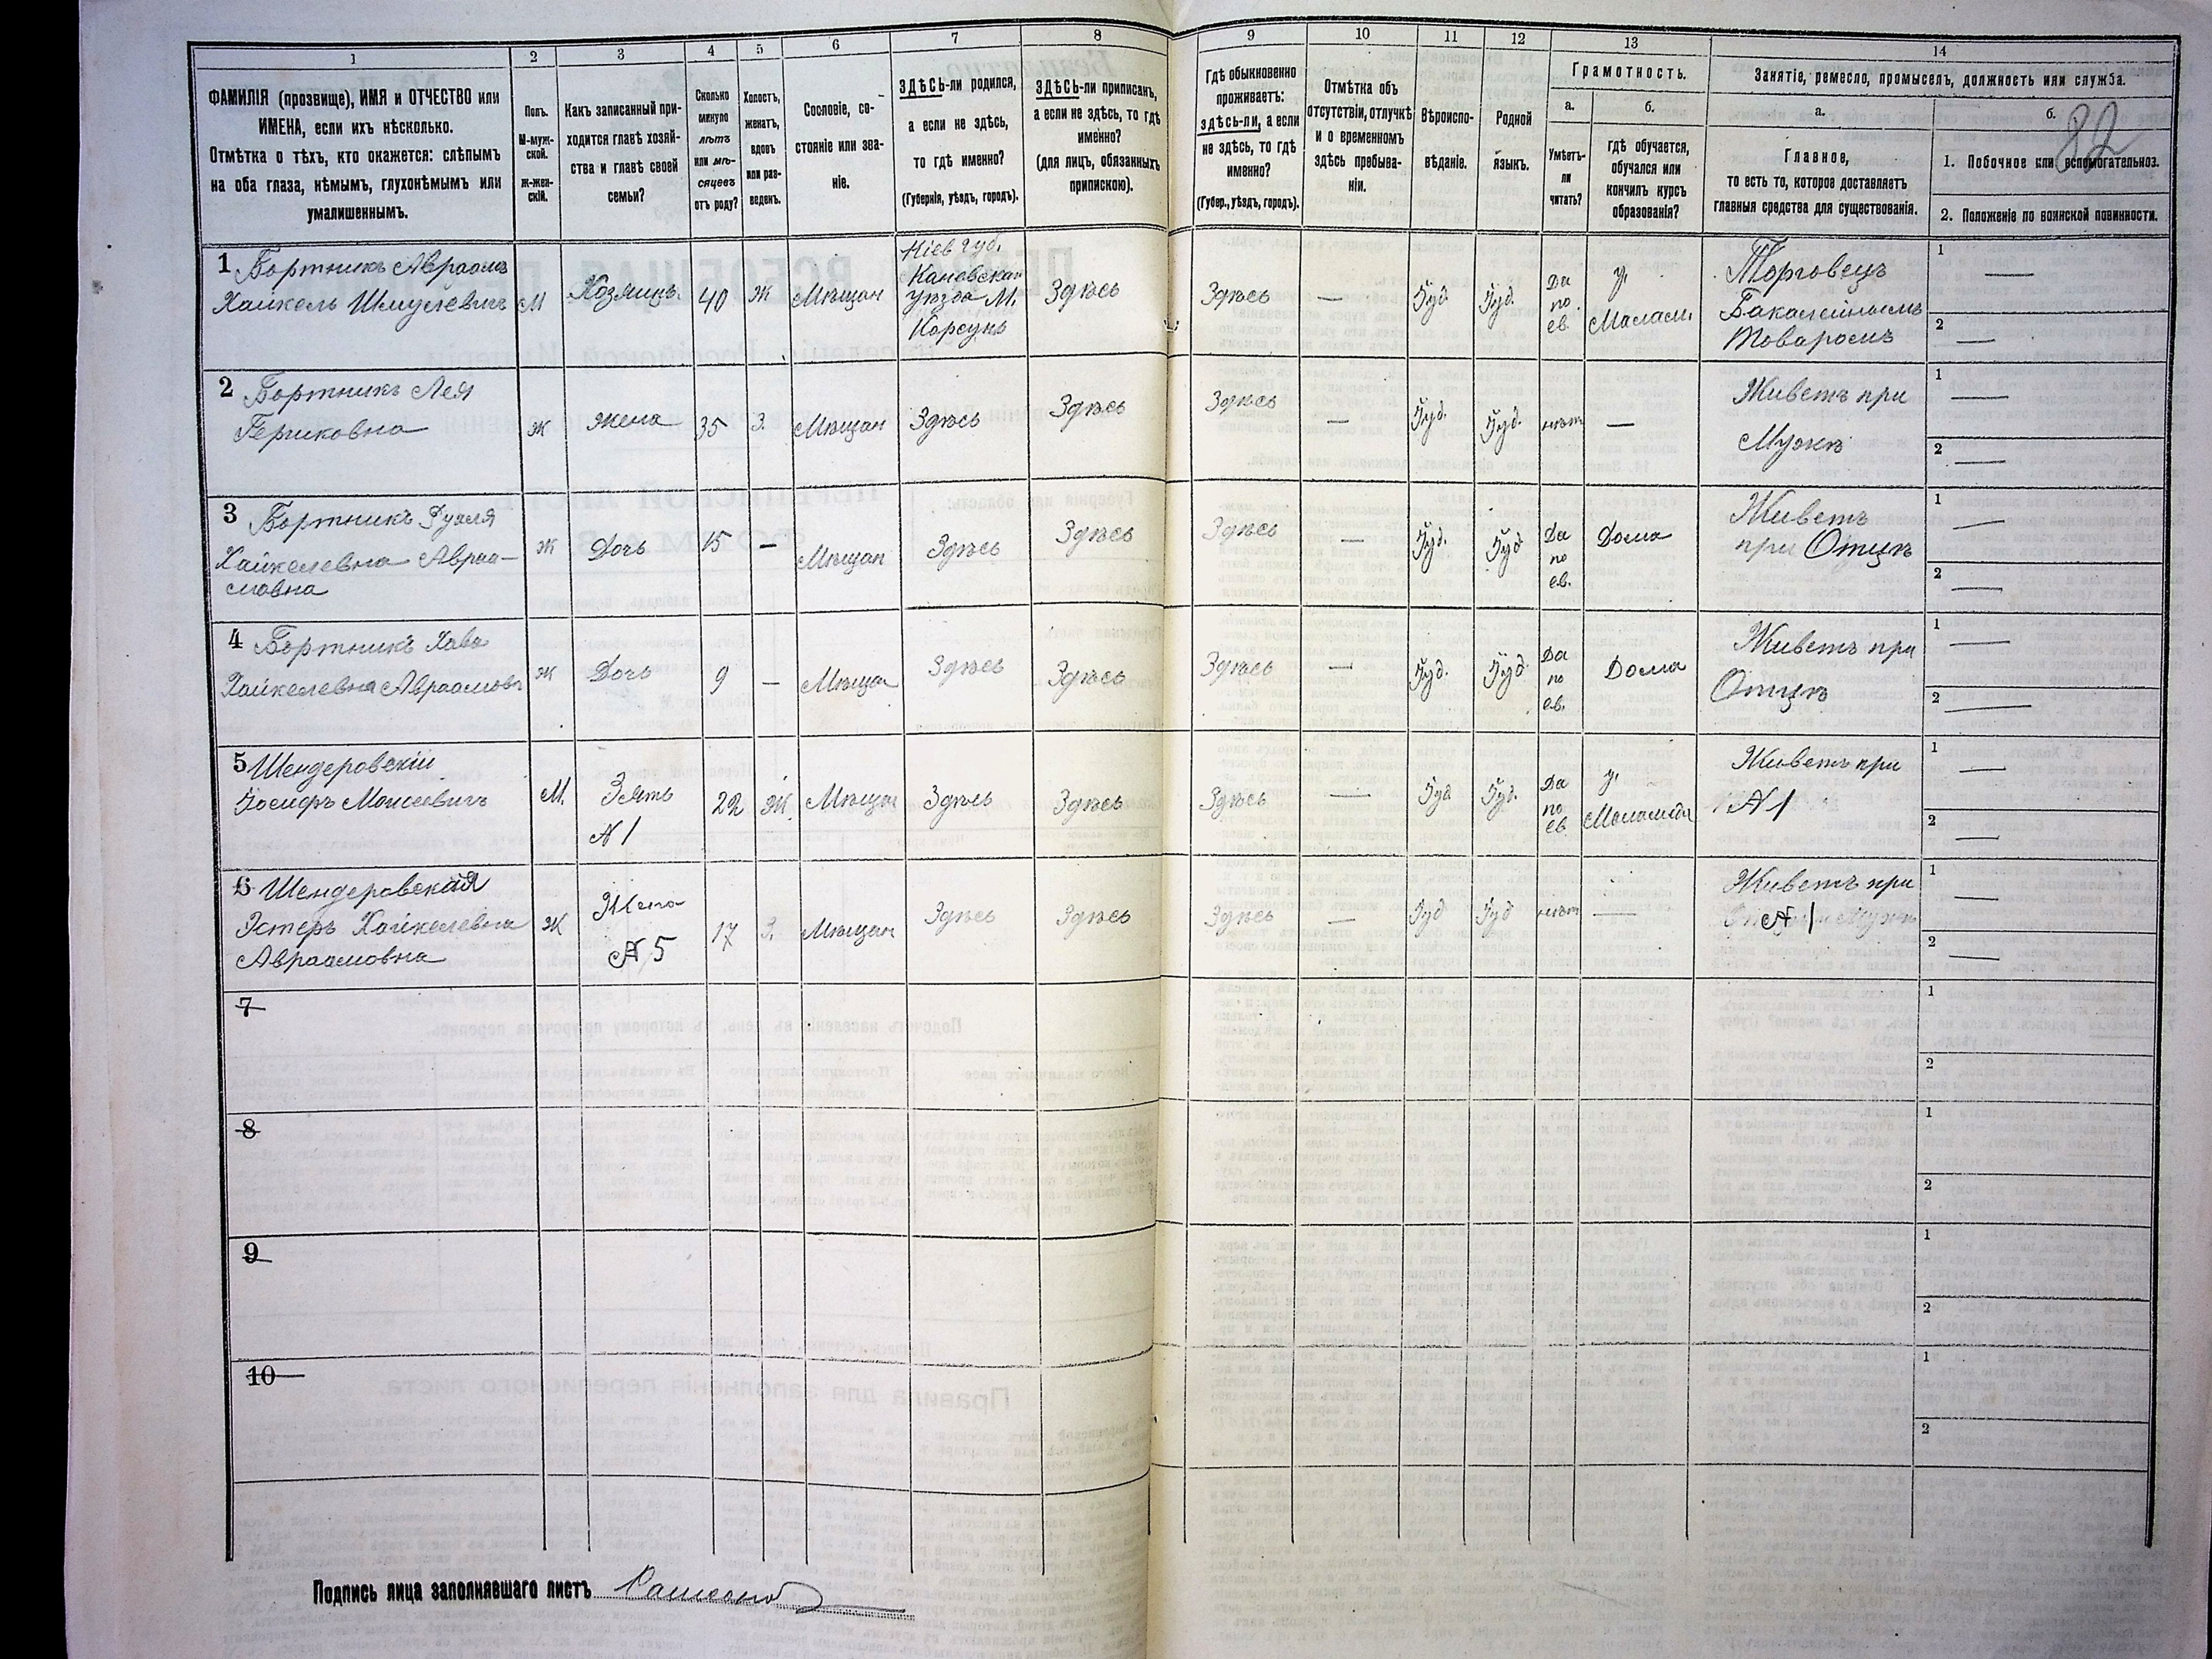 1 2 3 4 5 6 7 8 9 10 11 12 13 14
ФАМИЛІЯ (прозвище), ИМЯ и ОТЧЕСТВО или
ИМЕНА, если ихъ нѣсколько.
Отмѣтка о тѣхъ, кто окажется: слѣпымъ
на оба глаза, нѣмымъ, глухонѣмымъ или
умалишеннымъ.
Полъ.
М-муж-
ской.
Ж-жен-
скій.
Какъ записанный при-
ходится главѣ хозяй-
ства и главѣ своей
семьи?
Сколько
минуло
лѣтъ
или мѣ-
сяцевъ
отъ роду?
Холостъ,
женатъ,
вдовъ
или раз-
веденъ.
Сословіе, со-
стояніе или зва-
ніе.
ЗДѢСЬ-ли родился,
а если не здѣсь,
то гдѣ именно?
(Губернія, уѣздъ, городъ).
ЗДѢСЬ-ли приписанъ,
а если не здѣсь, то гдѣ
именно?
(для лицъ, обязанныхъ
припиской).
Гдѣ обыкновенно
проживаетъ:
здѣсь-ли, а если
не здѣсь, то гдѣ
именно?
(Губер., уѣздъ, городъ).
Отмѣтка объ
отсутствіи, отлучкѣ
и о временномъ
здѣсь пребыва-
ніи.
Вѣроиспо-
вѣданіе.
Родной
языкъ.
Грамотность.
а.
Умѣетъ-
ли
читать?
б.
гдѣ обучается,
обучался или
кончилъ курсъ
образованія?
Занятіе, ремесло, промыселъ, должность или служба.
а.
Главное,
то есть то, которое доставляетъ
главныя средства для существованія.
б.
82
1. Побочное или вспомогательное.
2. Положеніе по воинской повинности.
1 Бортникъ Авраамъ
Хайкель Шмулевичъ
М
Хозяинъ.
40
Ж
Мѣщан
Кіев губ.
Каневскаго
уѣзда М.
Корсунь
Здѣсь
Здѣсь
—
Іуд.
Іуд.
Да
по
ев.
у
Мелам.
Торговецъ
Бакалейнымъ
Товаромъ
1 —
2 —
2 Бортникъ Лея
Гершковна
Ж
Жена
35
З.
Мѣщан
Здѣсь
Здѣсь
Здѣсь
—
Іуд.
Іуд.
нѣтъ
—
Живетъ при
Мужѣ
1 —
2 —
3 Бортникъ Рухля
Хайкелевна Авраа-
мовна
Ж
Дочь
15
—
Мѣщан
Здѣсь
Здѣсь
Здѣсь
—
Іуд.
Іуд
Да
по
ев.
Дома
Живетъ
при Отцѣ
1 —
2 —
4 Бортникъ Хава
Хайкелевна Авраамовн
Ж
Дочь
9
—
Мѣщан
Здѣсь
Здѣсь
Здѣсь
—
Іуд.
Іуд
Да
по
ев.
Дома
Живетъ при
Отцѣ
1 —
2 —
5 Шендеровскій
Іосифъ Моисеевичъ
М.
Зять
№ 1
22
Ж.
Мѣщан
Здѣсь
Здѣсь
Здѣсь
—
Іуд
Іуд.
Да
по
ев.
у
Меламеда
Живетъ при
№ 1
1 —
2 —
6 Шендеровская
Эстеръ Хайкелевна
Авраамовна
Ж
Жена
№ 5
17
З.
Мѣщан
Здѣсь
Здѣсь
Здѣсь
—
Іуд
Іуд
нѣтъ
—
Живетъ при
№ 1
1 —
2 —
7
1
2
8
1
2
9
1
2
10
1
2
Подпись лица заполнявшаго листъ